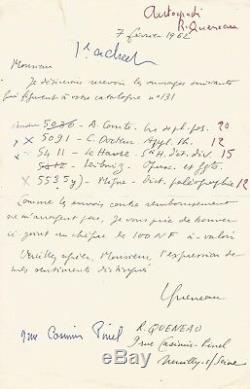 Autographe
R. Queneau
7 février 1962
1er achat
Monsieur
Je désirerais recevoir les ouvrages suivants
qui figurent à votre catalogue n° 131
5036 - A. Comte. 20
x 5091 - C. Appl. Th. 12
x 5411 - Le Havre Cté. d. hist. div. 15
5412 - Leibniz
x 5535 - Migne - Dict. paléographie 12
Comme les envois contre remboursement
ne m'arrangent pas, je vous prie de trouver
ci-joint un chèque de 100 NF à valoir
Veuillez agréer, Monsieur, l'expression de
mes sentiments distingués
Queneau
9 rue Casimir Pinel
R. QUENEAU
9 rue Casimir-Pinel
Neuilly s/ Seine